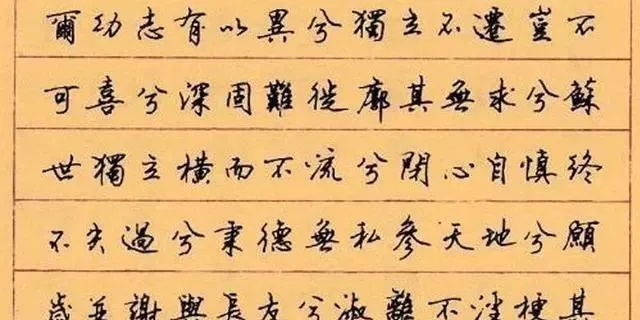 爾幼志有以異兮獨立不遷豈不
可喜兮深固難徙廓其無求兮蘇
世獨立橫而不流兮閉心自慎終
不失過兮秉德無私參天地兮願
歲並謝與長友兮淑離不淫梗其